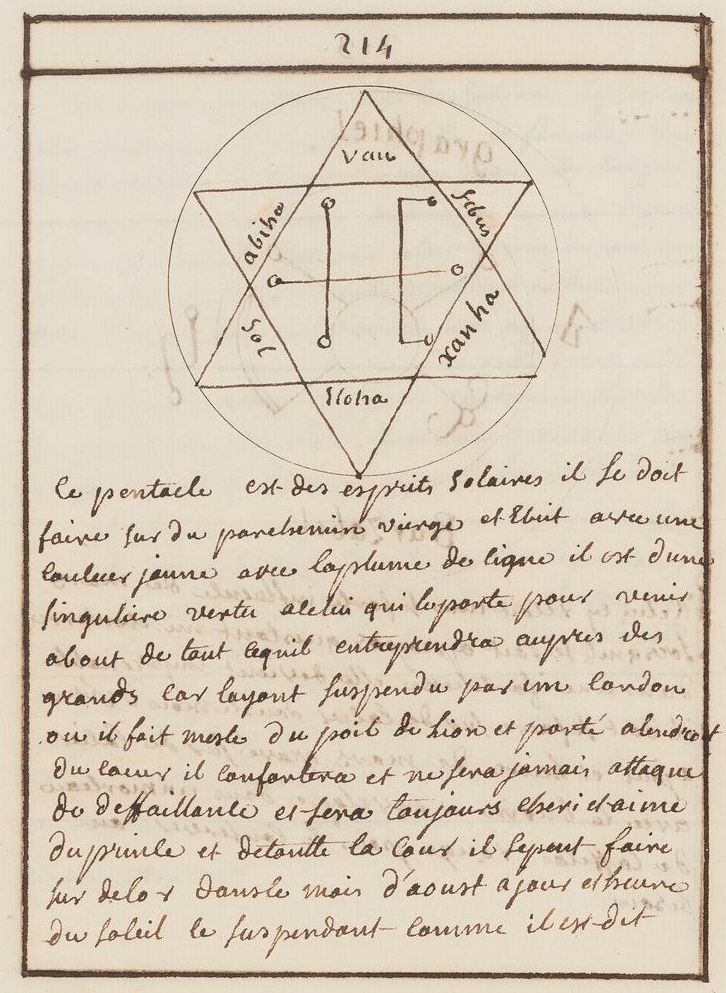 214
Vau
abiha
Sibus
Sol
xanha
Iloha
Ce pentacle est des esprits Solaires il se doit
faire sur du parchemin vierge et Ecrit avec une
couleur jaune avec la plume de cigne il est dune
singuliere vertu acelui qui le porte pour venir
about de tout cequil entreprendra aupres des
grands car layant suspendu par un cordon
ou il soit mesle du poil de Lion et porté alendroit
du coeur il confortera et ne sera jamais attaque
de deffaillance et sera toujours cheri et aime
du prince et detoutte la Cour il sepeut faire
sur de lor dans le mois d'aoust a jour et heure
du soleil le suspendant comme il est dit